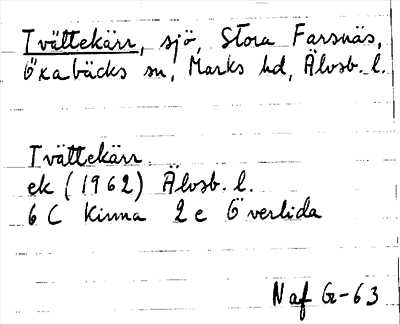 Tvättekärr, sjö, Stora Farsnäs,
Öxabäcks sn, Marks hd, Älvsb. l.
Tvättekärr
ek (1962) Älvsb. l.
6 C Kinna 2 e Överlida
Naf G-63